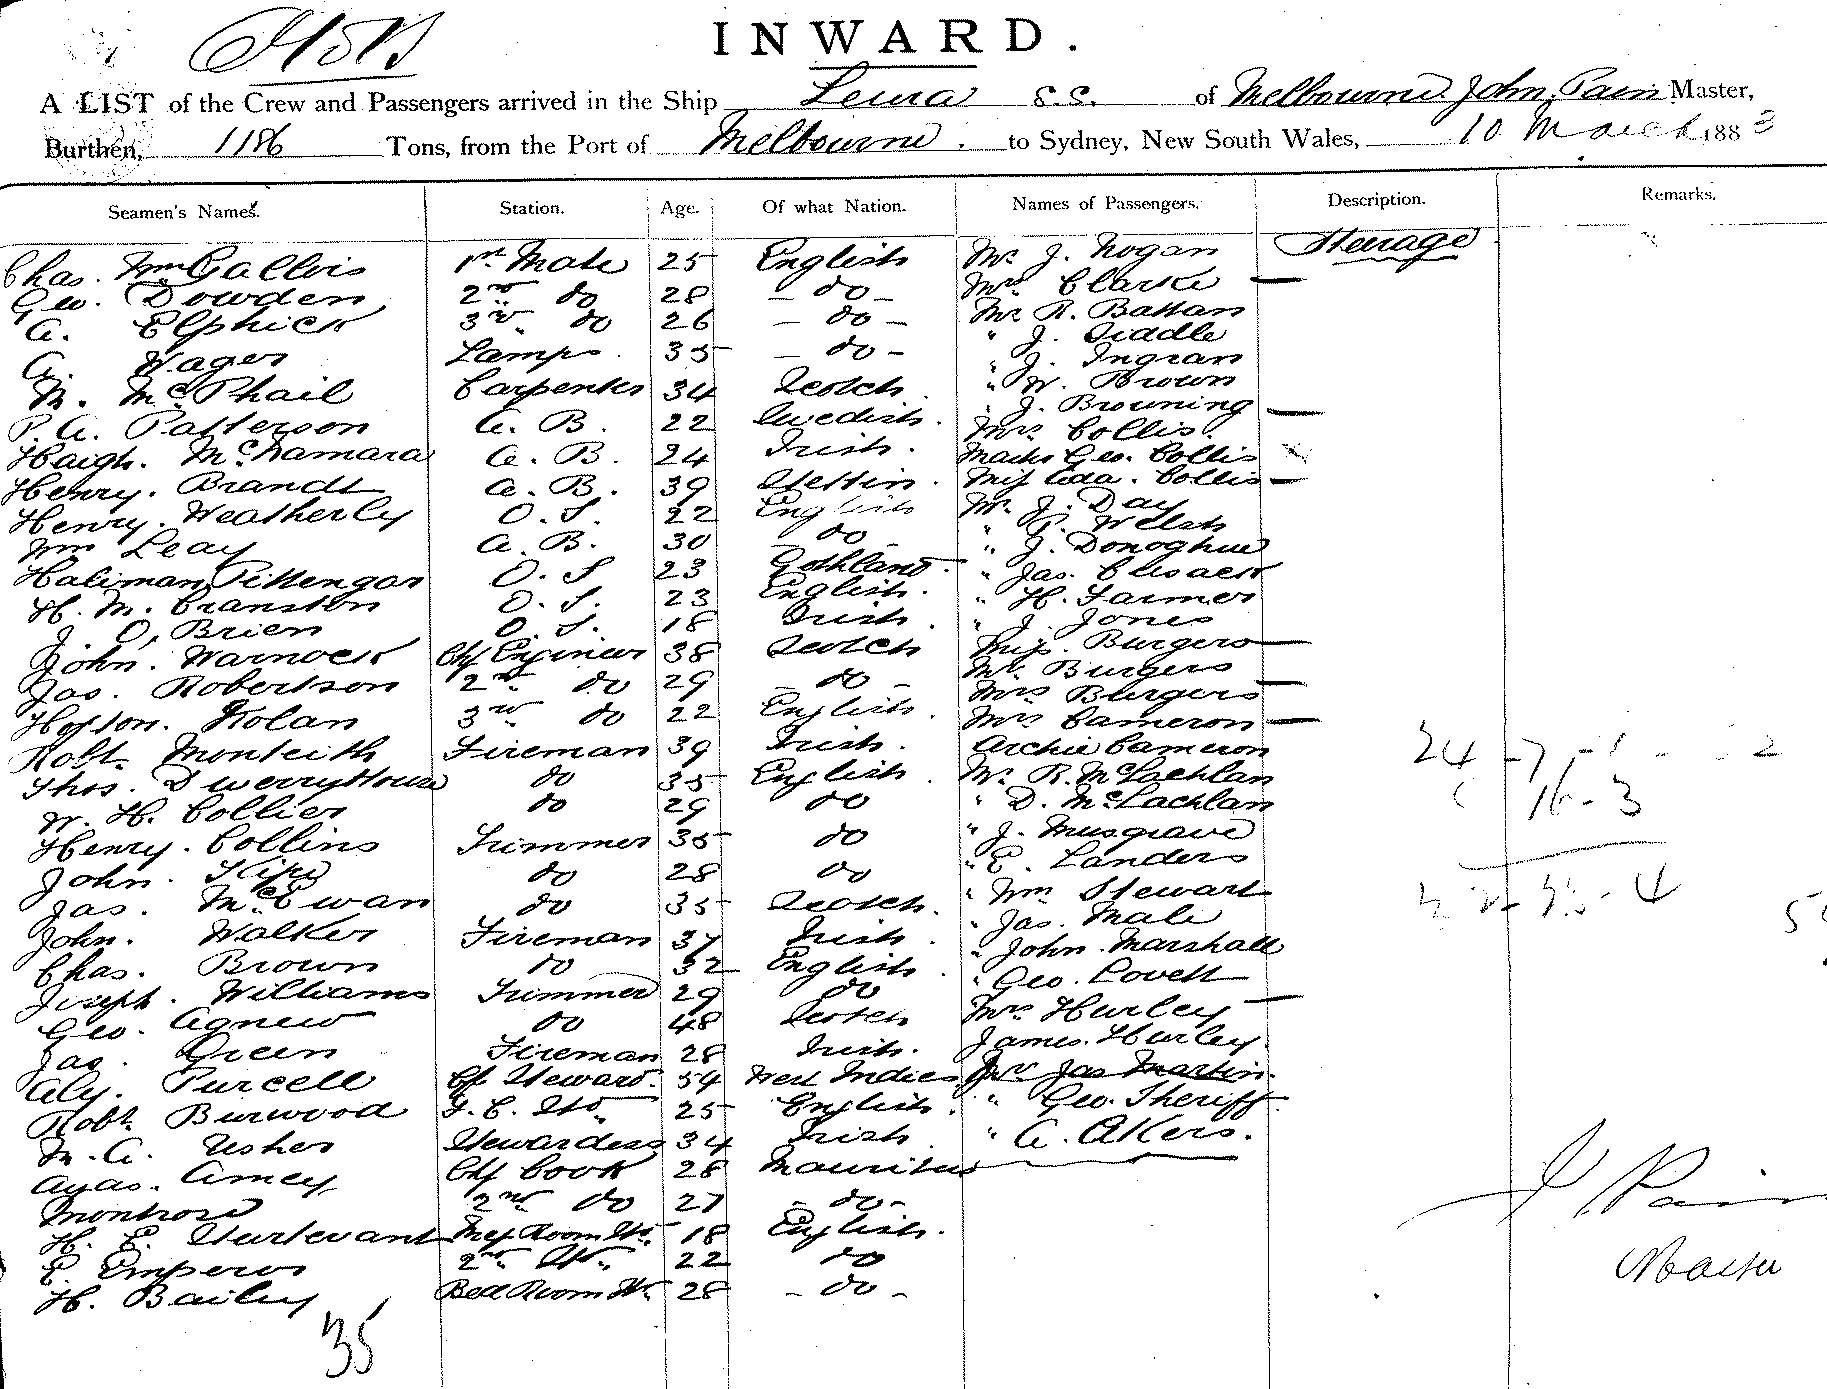 INWARD.
A LIST of the Crew and Passengers arrived in the Ship Leura S.S. of Melbourne John Pain Master,
Burthen, 1186 Tons, from the Port of Melbourne. to Sydney, New South Wales, 10 March 1883
Seamen's Names. Station. Age. Of what Nation. Names of Passengers. Description. Remarks.
Chas. Wm Gallvis 1st Mate 25 English Mr J. Nogan Steerage
Geo. Dowden 2nd do 28 - do - Mrs Clarke —
A. Elphick 3rd do 26 - do - Mr R. Battan
G. Wager Lamps 35 - do - " J. Siddle
" J. Ingram
M. McPhail Carpenter 34 Scotch " W. Brown
" J. Browning
P. A. Patterson A. B. 22 Swedish. Mrs Collis. —
Haigh. McNamara A. B. 24 Irish. Master Geo. Collis
Henry. Brandt A. B. 39 Stettin. Miss Ada. Collis —
Henry. Weatherly O. S. 22 English Mr. J. Day
" P. Welsh
Wm Leay A. B. 30 - do - " J. Donoghue
Haliman Pittengar O. S 23 Gothland " Jas. Clusack
H. M. Cranston O. S. 23 English. " H. Farmer
J. O'Brien O. S. 18 Irish. " J. Jones
John. Warnock Chf Engineer 38 Scotch Miss. Burgers —
Jas. Robertson 2nd do 29 - do - Mr. Burgers
Mrs Burgers —
Hopton. Nolan 3rd do 22 English. Mrs Cameron —
Robt. Monteith Fireman 39 Irish. Archie Cameron
Thos. Dwerryhouse do 35 English. Mr. R. McLachlan
W. H. Collier do 29 do " D. McLachlan
Henry. Collins Trimmer 35 do " J. Musgrave
John. Kipp do 28 do " E. Landers
Jas. McEwan do 35 Scotch. " Wm Stewart
" Jas. Male
John. Walker Fireman 37 Irish. " John. Marshall
Chas. Brown do 32 English. " Geo. Lovett
Joseph. Williams Trimmer 29 do
Geo. Agnew do 48 Scotch Mrs Hurley —
Jas. Green Fireman 28 Irish. James. Hurley.
Aly. Purcell Cf Steward. 54 West Indies Mr Jas Martin.
Robt. Burwood F. C. Std. 25 English. " Geo. Sheriff.
M. A. Usher Stewardess 34 Irish. " A. Akers.
Ayas. Amey Chf Cook 28 Mauritius
Montrose 2nd do 27 - do -
H. E. Sturtevant Mess Room St. 18 English.
E. Emperor 2nd St. 22 do
H. Bailey Bed Room St. 28 - do -
35
24 - 7 - 1 - - 2
16 - 3
J Pain
Master